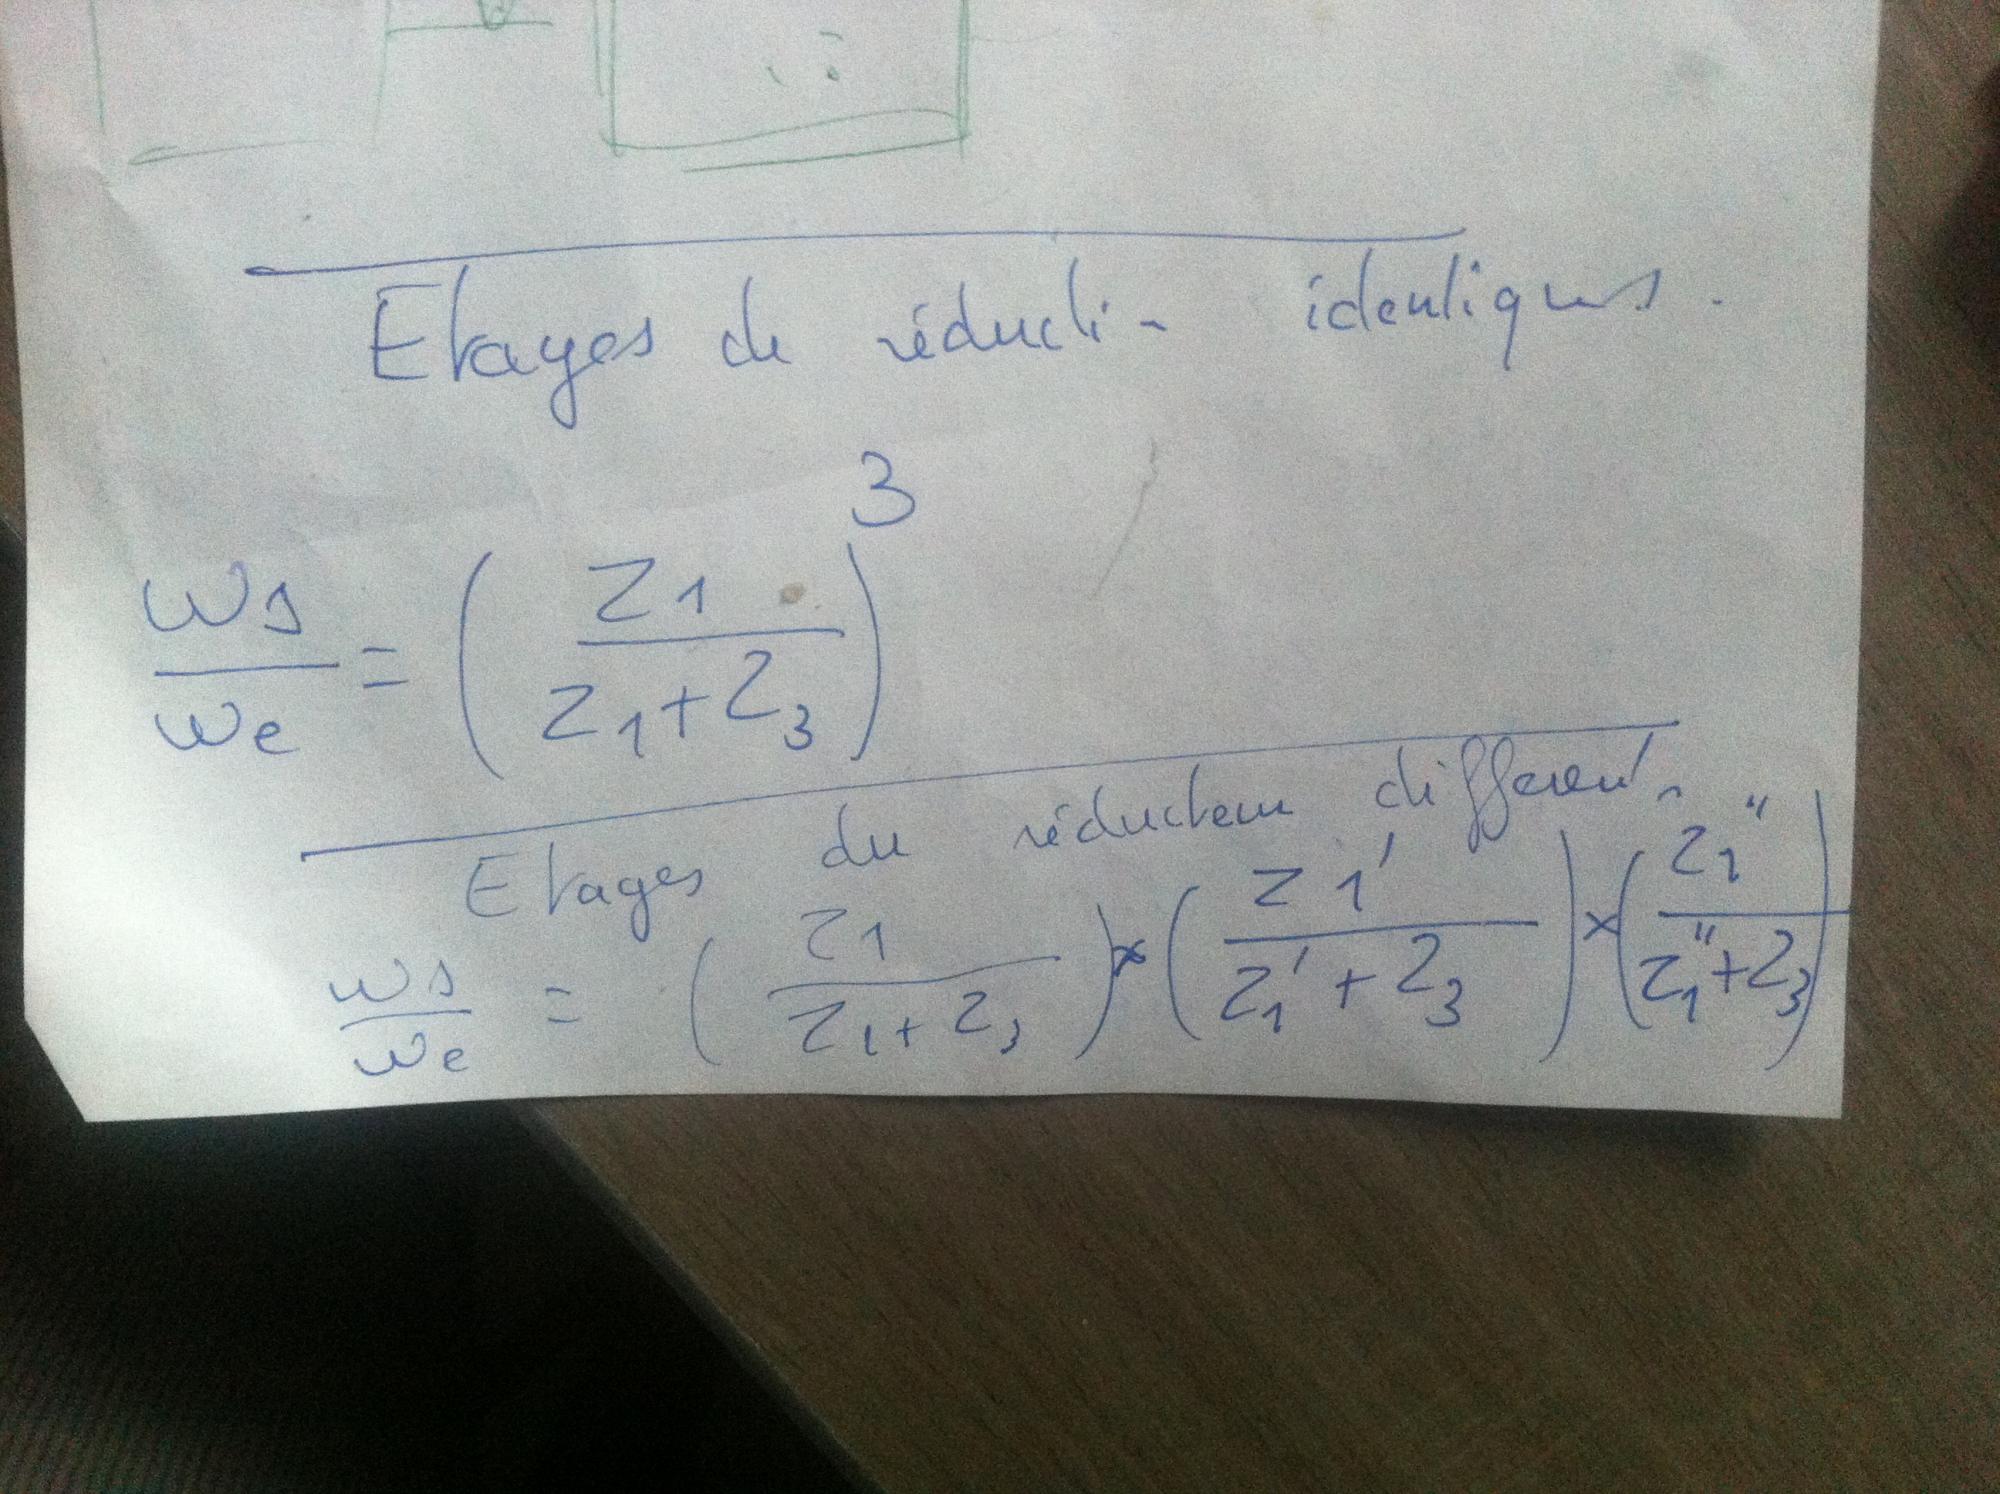 Etages de réduction identiques.
ωs/ωe = (Z1/(Z1+Z3))^3
Etages du réducteur different.
ωs/ωe = (Z1/(Z1+Z3)) × (Z1'/(Z1'+Z3)) × (Z1"/(Z1"+Z3))